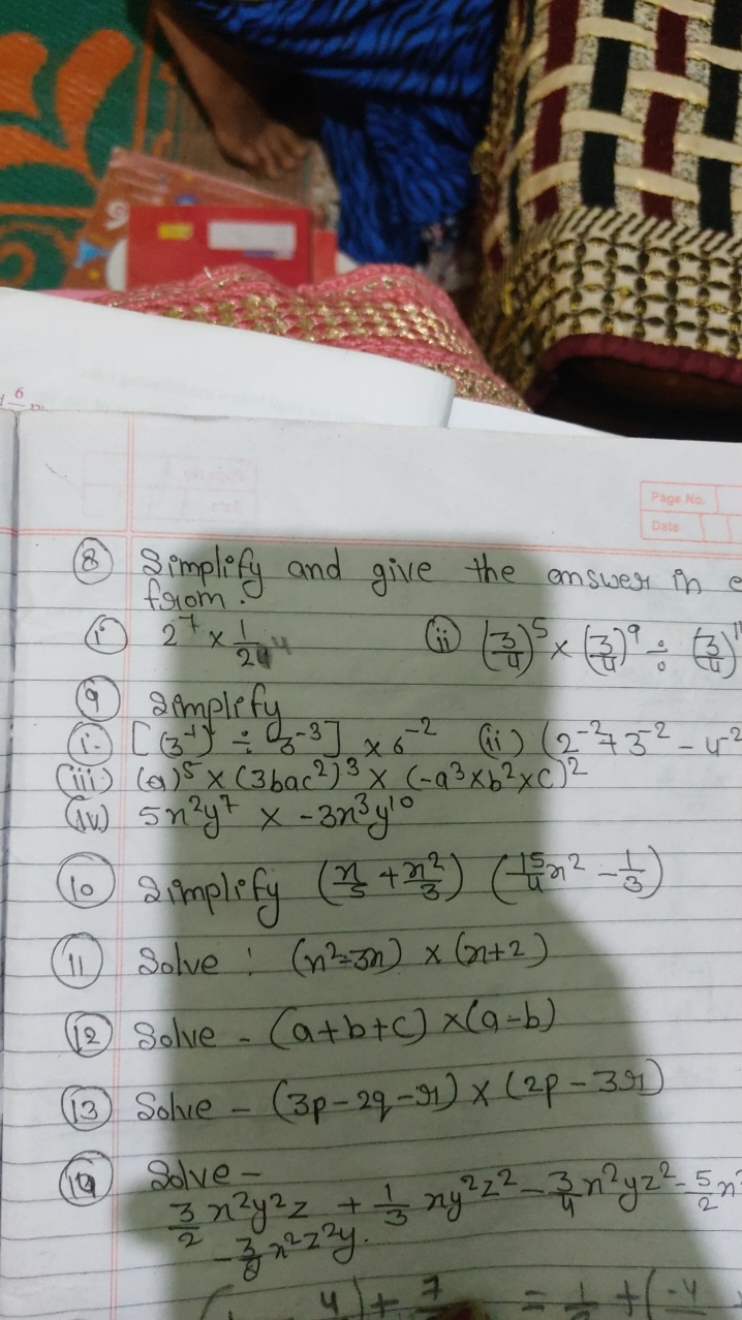 6
Page No.
Date
⑧ Simplify and give the answer in e
from.
(i) 2^7 × 1/2^4 (ii) (3/4)^5 × (3/4)^9 ÷ (3/4)^11
⑨ Simplify
(i- [(3^-1) ÷ 3^-3] × 6^-2 (ii) (2^-2 + 3^-2 - 4^-2
(iii) (a)^5 × (3bac^2)^3 × (-a^3×b^2×c)^2
(iv) 5n^2y^7 × -3n^3y^10
⑩ Simplify (n/5 + n^2/3) (15/4 n^2 - 1/3)
⑪ Solve : (n^2-3n) × (n+2)
⑫ Solve - (a+b+c) ×(a-b)
⑬ Solve - (3p-2q-r) × (2p-3r)
⑭ Solve -
3/2 n^2y^2z + 1/3 ny^2z^2 - 3/4 n^2yz^2 - 5/2 n
n^2z^2y.
4) + 7 = 1 + (-4